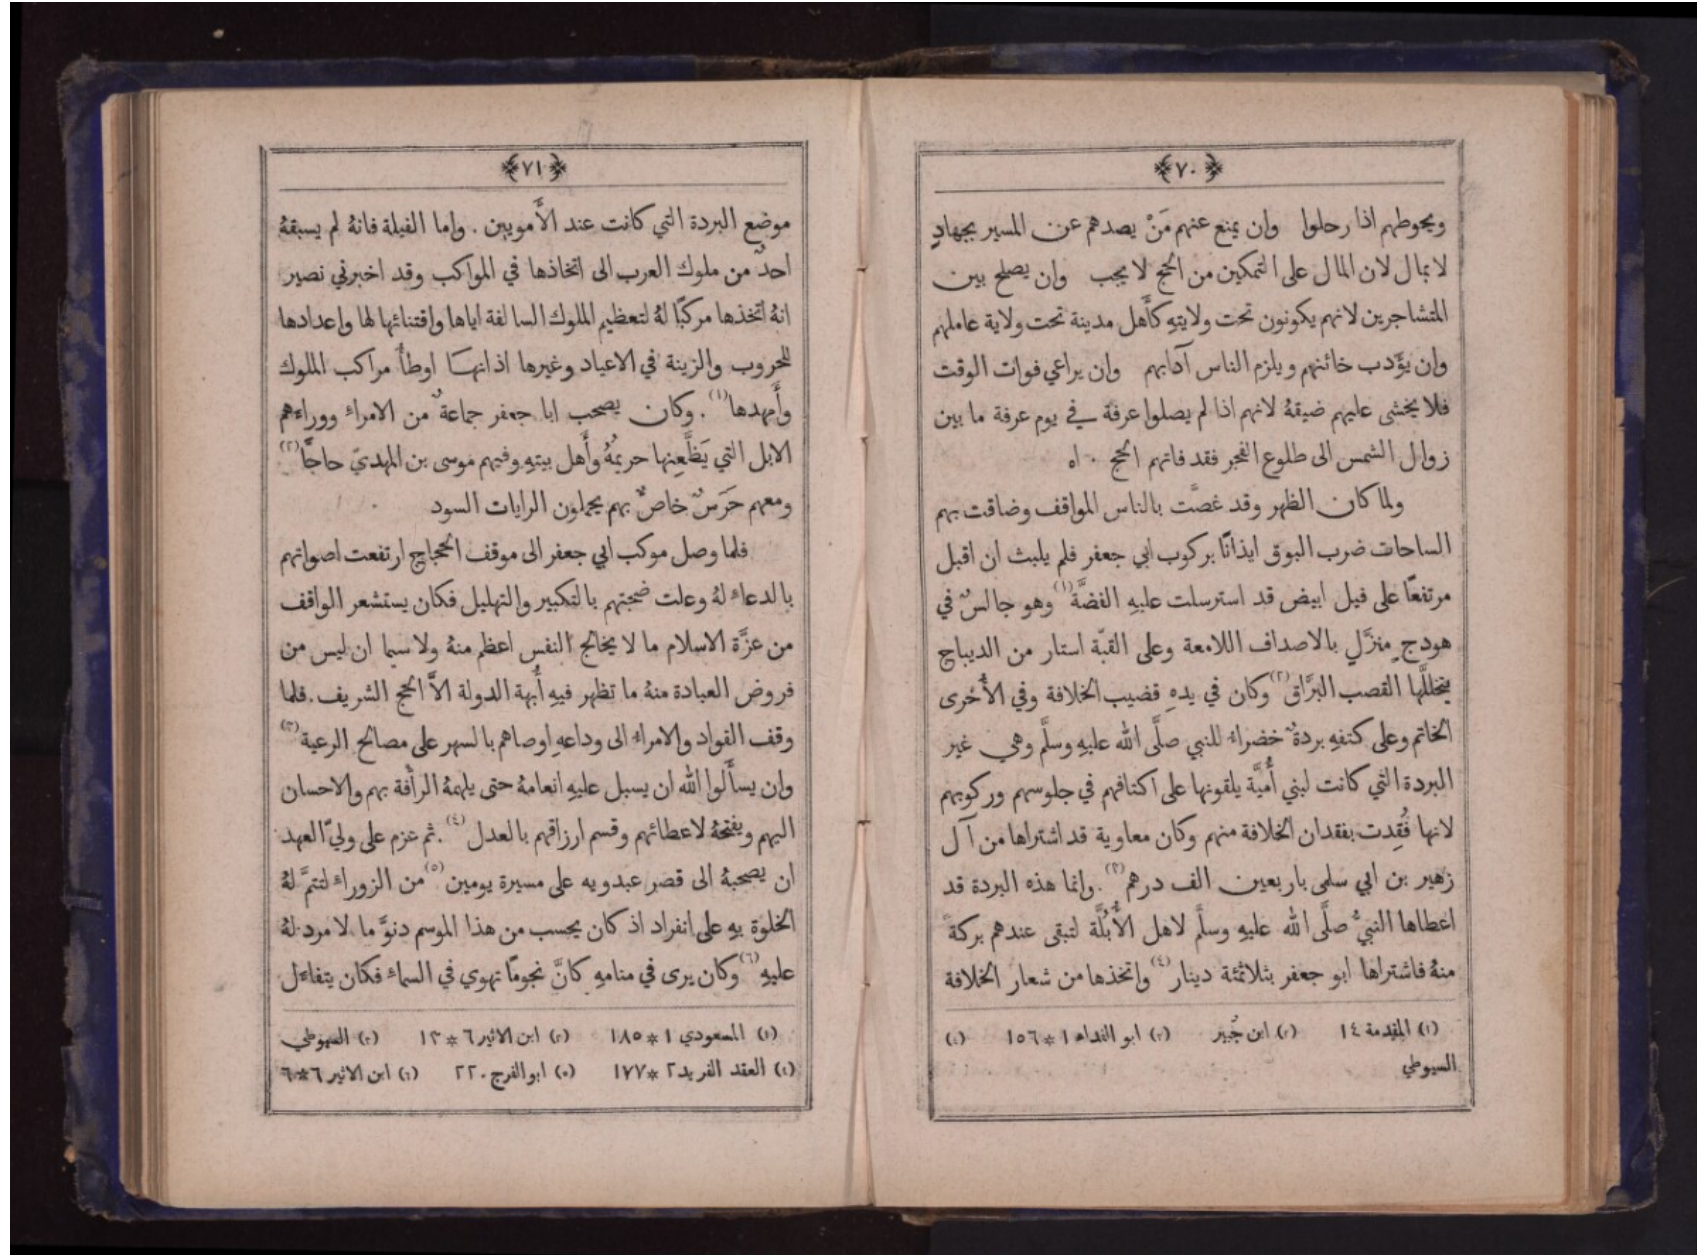 ﴿٧٠﴾
ويحوطهم اذا رحلوا وان يمنع عنهم مَنْ يصدهم عن المسير بجهادٍ
لا بمال لان المال على التمكين من الحج لا يجب وان يصلح بين
المتشاجرين لانهم يكونون تحت ولايتهِ كأَهل مدينة تحت ولاية عاملهم
وان يؤَدب خائنهم ويلزم الناس آدابهم وان يراعي فوات الوقت
فلا يخشى عليهم ضيقهُ لانهم اذا لم يصلوا عرفة في يوم عرفة ما بين
زوال الشمس الى طلوع الفجر فقد فاتهم الحج ٠ اه
ولما كان الظهر وقد غصَّت بالناس المواقف وضاقت بهم
الساحات ضرب البوق ايذانًا بركوب ابي جعفر فلم يلبث ان اقبل
مرتفعًا على فيل ابيض قد استرسلت عليهِ الفضَّة(١) وهو جالسٌ في
هودجٍ منزَّلٍ بالاصداف اللامعة وعلى القبّة استار من الديباج
يتخللَّها القصب البرَّاق(٢) وكان في يدهِ قضيب الخلافة وفي الأُخرى
الخاتم وعلى كتفهِ بردةٌ خضراءُ للنبي صلَّى الله عليهِ وسلَّم وهي غير
البردة التي كانت لبني أُميَّة يلقونها على اكتافهم في جلوسهم وركوبهم
لانها فُقِدت بفقدان الخلافة منهم وكان معاوية قد اشتراها من آل
زهير بن ابي سلمى باربعين الف درهم(٣). وانما هذه البردة قد
اعطاها النبيُّ صلَّى الله عليهِ وسلَّم لاهل الأُبُلَّة لتبقى عندهم بركةً
منهُ فاشتراها ابو جعفر بثلاثمئة دينار(٤) واتخذها من شعار الخلافة
(١) المقدمة ١٤ (٢) ابن جُبير (٣) ابو الفداء ١*١٥٦ (٤)
السيوطي
﴿٧١﴾
موضع البردة التي كانت عند الأَمويين . واما الفيلة فانهُ لم يسبقهُ
احدٌ من ملوك العرب الى اتخاذها في المواكب وقد اخبرني نصير
انهُ اتخذها مركبًا لهُ لتعظيم الملوك السالفة اياها واقتنائها لها واعدادها
للحروب والزينة في الاعياد وغيرها اذ انها اوطأُ مراكب الملوك
وأَمهدها(١). وكان يصحب ابا جعفر جماعةٌ من الامراء ووراءهم
الابل التي يَظَّعِنها حريمُهُ وأَهل بيتهِ وفيهم موسى بن المهديّ حاجًّا(٢)
ومعهم حَرَسٌ خاصٌّ بهم يحملون الرايات السود
فلما وصل موكب ابي جعفر الى موقف الحجاج ارتفعت اصواتهم
بالدعاء لهُ وعلت ضجتهم بالتكبير والتهليل فكان يستشعر الواقف
من عزَّة الاسلام ما لا يخالج النفس اعظم منهُ ولا سيما ان ليس من
فروض العبادة منهُ ما تظهر فيهِ أُبهة الدولة الاَّ الحج الشريف . فلما
وقف القواد والامراء الى وداعهِ اوصاهم بالسهر على مصالح الرعية(٣)
وان يسأَلوا الله ان يسبل عليهِ انعامهُ حتى يلهمهُ الرأفة بهم والاحسان
اليهم ويفتحهُ لاعطائهم وقسم ارزاقهم بالعدل(٤). ثم عزم على وليّ العهد
ان يصحبهُ الى قصر عبدويه على مسيرة يومين(٥) من الزوراء لتتمَّ لهُ
الخلوة بهِ على انفراد اذ كان يحسب من هذا الموسم دنوَّ ما لا مرد لهُ
عليهِ(٦) وكان يرى في منامهِ كأنَّ نجومًا تهوي في السماء فكان يتفاءَل
(١) المسعودي ١*١٨٥ (٢) ابن الاثير ٦*١٣ (٣) السيوطي
(٤) العقد الفريد ٢*١٧٧ (٥) ابو الفرج ٢٢٠ (٦) ابن الاثير ٦*٦